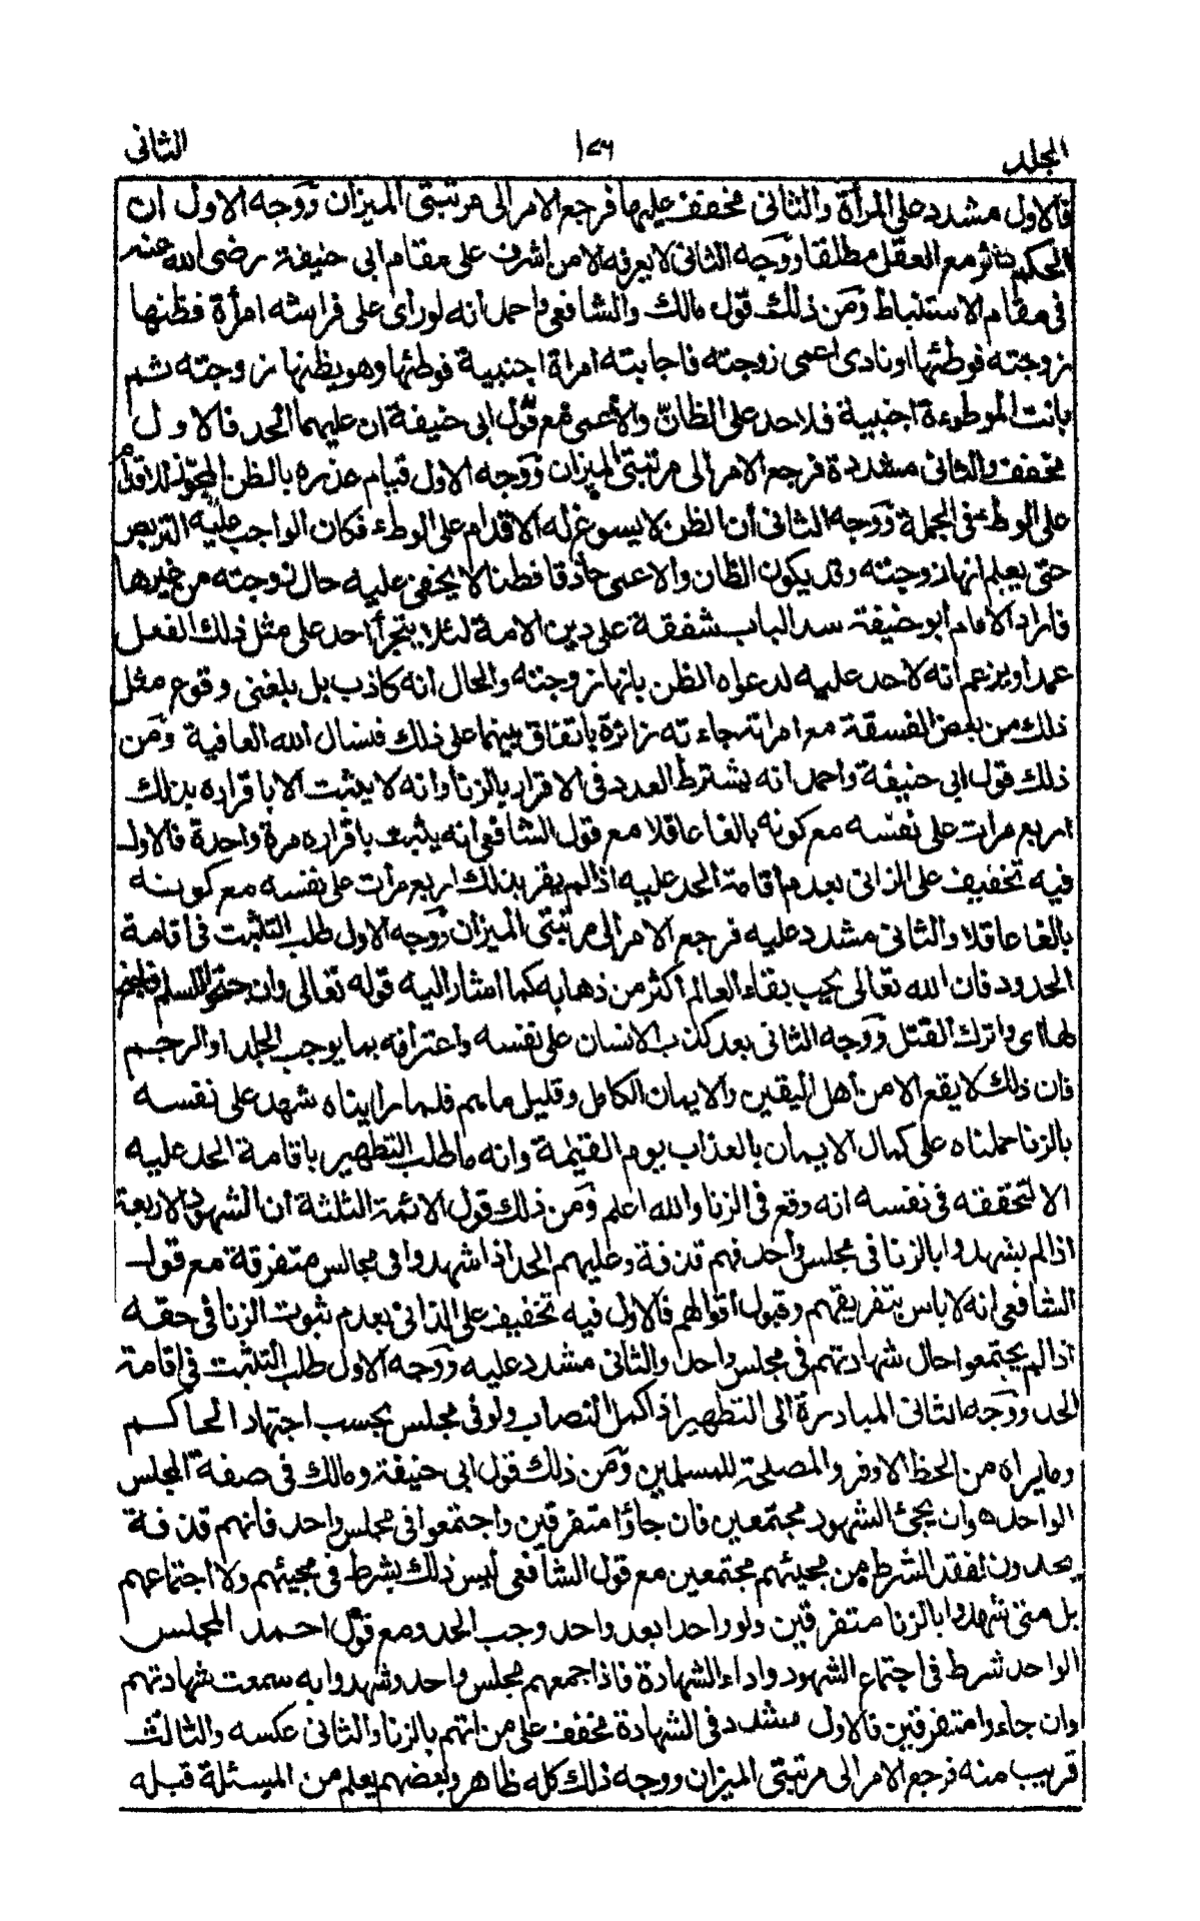 المجلد ١٧٦ الثانى
فالاول مشدد على المرأة والثانى مخفف عليها فرجع الامر الى مرتبتى الميزان ووجه الاول ان
الحكم دائر مع العقل مطلقا ووجه الثانى لا يعرفه الا من اشرف على مقام ابى حنيفة رضى الله عنه
فى مقام الاستنباط ومن ذلك قول مالك والشافعى واحمد انه لو راى على فراشه امرأة فظنها
زوجته فوطئها او نادى اعمى زوجته فاجابته امراة اجنبية فوطئها وهو يظنها زوجته ثم
بانت الموطوءة اجنبية فلا حد على الظان والاعمى مع قول ابى حنيفة ان عليهما الحد فالاول
مخفف والثانى مشدد فرجع الامر الى مرتبتى الميزان ووجه الاول قيام عذره بالظن المجوز للاقدام
على الوطء فى الجملة ووجه الثانى أن الظن لا يسوغ له الاقدام على الوطء فكان الواجب عليه التربص
حتى يعلم انها زوجته وقد يكون الظان والاعمى حاذقا فطنا لا يخفى عليه حال زوجته من غيرها
فاراد الامام أبو حنيفة سد الباب شفقة على دين الامة لئلا يتجرأ احد على مثل ذلك الفعل
عمدا ويزعم انه لا حد عليه لدعواه الظن بانها زوجته والحال انه كاذب بل بلغنى وقوع مثل
ذلك من بعض الفسقة مع امراته جاءته زائرة باتفاق بينهما على ذلك فنسال الله العافية ومن
ذلك قول ابى حنيفة واحمد انه يشترط العدد فى الاقرار بالزنا وانه لا يثبت الا باقراره بذلك
اربع مرات على نفسه مع كونه بالغا عاقلا مع قول الشافعى انه يثبت باقراره مرة واحدة فالاول
فيه تخفيف على الزانى بعدم أقامة الحد عليه اذا لم يقر بذلك اربع مرأت على نفسه مع كونه
بالغا عاقلا والثانى مشدد عليه فرجع الامر الى مرتبتى الميزان ووجه الاول طلب التثبت فى اقامة
الحدود فان الله تعالى يحب بقاء العالم أكثر من ذهابه كما اشار اليه قوله تعالى وان جنحوا للسلم فاجنح
لها اى واترك القتل ووجه الثانى بعد كذب الانسان على نفسه واعترافه بما يوجب الجلد او الرجم
فان ذلك لا يقع الا من أهل اليقين والايمان الكامل وقليل ما هم فلما رايناه شهد على نفسه
بالزنا حملناه على كمال الايمان بالعذاب يوم القيٰمة وانه ما طلب التطهير باقامة الحد عليه
الا لتحققه فى نفسه انه وقع فى الزنا والله اعلم ومن ذلك قول الائمة الثلثة أن الشهود الاربعة
اذا لم يشهدوا بالزنا فى مجلس واحد فهم قذفة وعليهم الحد اذا شهدوا فى مجالس متفرقة مع قول
الشافعى انه لا باس بتفريقهم وقبول أقوالهم فالاول فيه تخفيف على الزانى بعدم ثبوت الزنا فى حقه
اذا لم يجتمعوا حال شهادتهم فى مجلس واحد والثانى مشدد عليه ووجه الاول طلب التثبت فى اقامة
الحد ووجه الثانى المبادرة الى التطهير اذا كمل النصاب ولو فى مجلس بحسب اجتهاد الحاكم
وما يراه من الحظ الاوفر والمصلحة للمسلمين ومن ذلك قول ابى حنيفة ومالك فى صفة المجلس
الواحد وان يجئ الشهود مجتمعين فان جاؤا متفرقين واجتمعوا فى مجلس واحد فانهم قذفة
يحدون لفقد الشرط من مجيئهم مجتمعين مع قول الشافعى ليس ذلك بشرط فى مجيئهم ولا اجتماعهم
بل متى شهدوا بالزنا متفرقين ولو واحدا بعد واحد وجب الحد ومع قول احمد المجلس
الواحد شرط فى اجتماع الشهود واداء الشهادة فاذا جمعهم مجلس واحد وشهدوا به سمعت شهادتهم
وان جاءوا متفرقين فالاول مشدد فى الشهادة مخفف على من اتهم بالزنا والثانى عكسه والثالث
قريب منه فرجع الامر الى مرتبتى الميزان ووجه ذلك كله ظاهر وبعضهم يعلم من المسئلة قبله